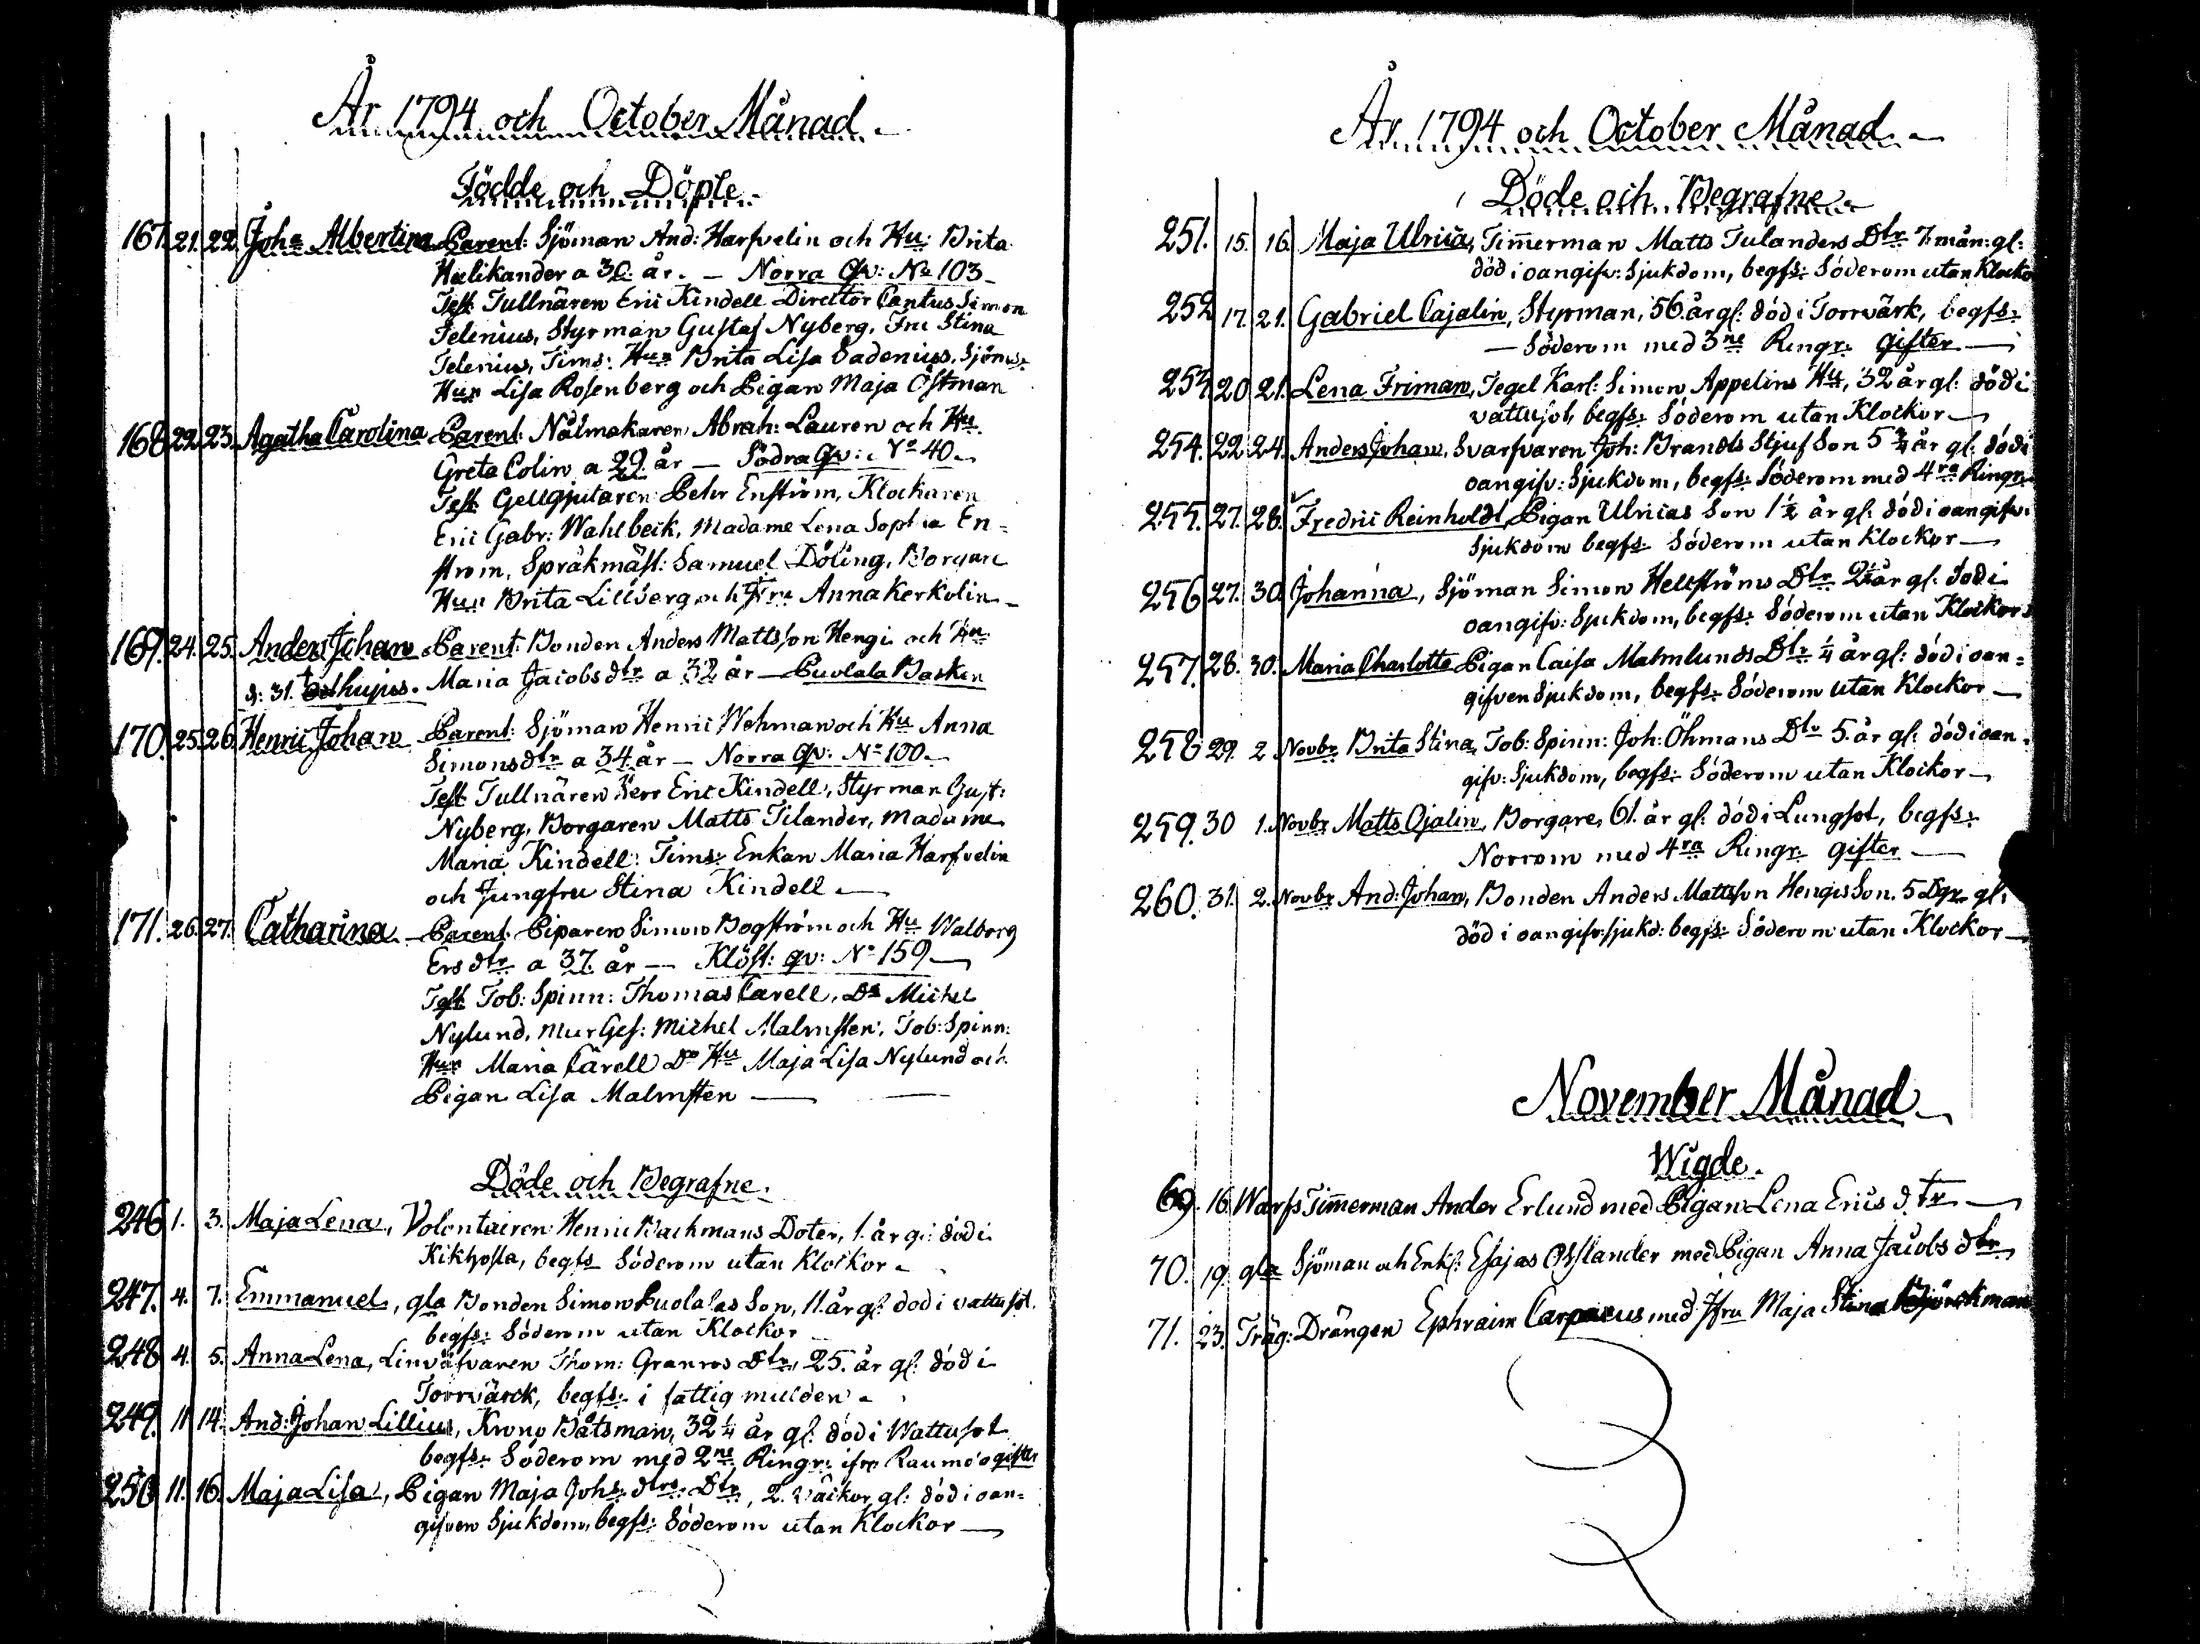 År 1794 och October Månad.
Födde och Döpte.
167. 21. 22. Joha Albertina Parent: Sjöman And: Harfvelin och Hu: Brita
Helikander a 30. år. — Norra Qv: No 103.
Test. Tullnären Eric Kindell Director Cantus Simon
Telenius, Styrman Gustaf Nyberg, Fru Stina
Telenius, Tims: Hu: Brita Lisa Sadenius, Sjöms:
Hu: Lisa Rosenberg och Pigan Maja Östman
168 22. 23. Agatha Carolina Parent: Nålmakaren Abrah: Lauren och Hu.
Greta Colin a 29 år — Södra Qv: No 40.
Test. Gellgjutaren Pehr Enström, Klockaren
Eric Gabr: Wahlbeck, Madame Lena Sophia En=
ström, Språkmäst: Samuel Döling, Borgare
Hu: Brita Lillberg och Fru Anna Kerkolin
169. 24. 25. Anders Johan Parent: Bonden Anders Mattsson Hengi och Hu
d: 31. hujus. Maria Jacobs dtr a 32 år — Puolala Backen
170. 25. 26. Henric Johan Parent: Sjöman Henric Wehman och Hu Anna
Simons dtr a 34 år — Norra Qv: No 100.
Test Tullnären Herr Eric Kindell, Styrman Gust:
Nyberg, Borgaren Matts Tilander, Madame
Maria Kindell: Tims: Enkan Maria Harfvelin
och Jungfru Stina Kindell
171. 26. 27. Catharina Parent. Piparen Simon Bogström och Hu Walborg
Ers dtr a 37. år — Klöst: qv: No 159
Test Tob: Spinn: Thomas Carell, Do Michel
Nylund, Mur Ges: Michel Malmsten, Tob: Spinn:
Hu: Maria Carell Do Hu Maja Lisa Nylund och
Pigan Lisa Malmsten
Döde och Begrafne.
246 1. 3. Maja Lena, Volontairen Henric Backmans Doter, 1. år gl: död i
Kikhosta, begfs Söderom utan Klockor
247. 4. 7. Emmanuel, gla Bonden Simon Puolalas Son, 11. år gl: död i vattusot.
begfs: Söderom utan Klockor
248 4. 5. Anna Lena, Linväfvaren Thom: Granros Dtr, 25. år gl: död i
Torrvärck, begfs: i fattig mulden
249. 11 14. And: Johan Lillius, Krono Båtsman, 32 1/4 år gl: död i Wattusot
begfs: Söderom med 2ne Ringr: ifrån Raumo gifter
250 11. 16. Maja Lisa, Pigan Maja Johs dtrs Dtr, 2. Väckor gl: död i oan=
gifven Sjukdom, begfs: Söderom utan Klockor
År 1794 och October Månad.
Döde och Begrafne.
251. 15. 16. Maja Ulrica, Timerman Matts Tulanders Dtr 7. mån: gl:
död i oangifv: Sjukdom, begfs: Söderom utan Klockor
252 17. 21. Gabriel Cajalin, Styrman, 56. år gl: död i Torrvärk, begfs:
— Söderom med 3ne Ringr: Gifter
253. 20 21. Lena Friman, Tegel Karl: Simon Appelins Hu, 32 år gl: död i
vattusot, begfs: Söderom utan Klockor
254. 22 24. Anders Johan, Svarfvaren Joh: Brands Stjuf Son 5 3/4 år gl: död i
oangifv: Sjukdom, begfs: Söderom med 4ra Ringr:
255. 27. 28. Fredric Reinholdt, Pigan Ulricas Son 1 1/2 år gl: död i oangifv:
Sjukdom begfs: Söderom utan Klockor
256 27. 30. Johanna, Sjöman Simon Hellströms Dtr 2 1/2 år gl: död i
oangifv: Sjukdom, begfs: Söderom utan Klockor
257. 28. 30. Maria Charlotta Pigan Caisa Malmlunds Dtr 1/4 år gl: död i oan=
gifven Sjukdom, begfs: Söderom utan Klockor
258 29. 2 Novbr Brita Stina, Tob: Spinn: Joh: Öhmans Dtr 5. år gl: död i oan=
gifv: Sjukdom, begfs: Söderom utan Klockor
259. 30 1. Novbr Matts Ojalin, Borgare, 61. år gl: död i Lungsot, begfs:
Norrom med 4ra Ringr: gifter
260. 31. 2. Novbr And: Johan, Bonden Anders Mattsson Hengis Son. 5 Dgr gl:
död i oangifv: sjukd: begfs: Söderom utan Klockor
November Månad
Wigde.
69. 16. Warfs Timerman Ander Erlund med Pigan Lena Erics dtr
70. 19. gla Sjöman och Enkl: Esajas med Pigan Anna Jacobs dtr
71. 23. Träg: Drängen Ephraim Carpaeus med Jfru Maja Stina Björckman